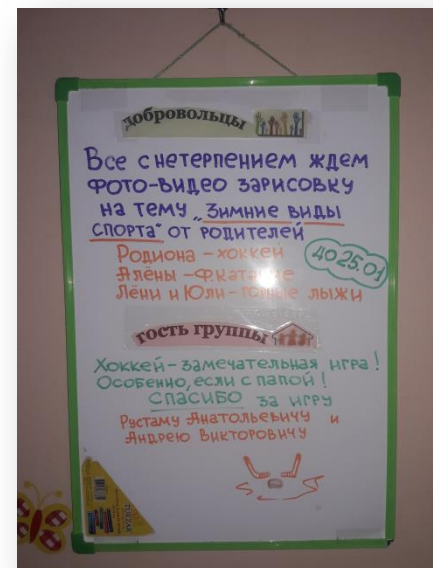 добровольцы
Все с нетерпением ждем
фото-видео зарисовку
на тему „Зимние виды
спорта“ от родителей
Родиона – хоккей
Алёны – ф. катание
Лёни и Юли – горные лыжи
до 25.01
гость группы
Хоккей – замечательная игра!
Особенно, если с папой!
СПАСИБО за игру
Рустаму Анатольевичу и
Андрею Викторовичу